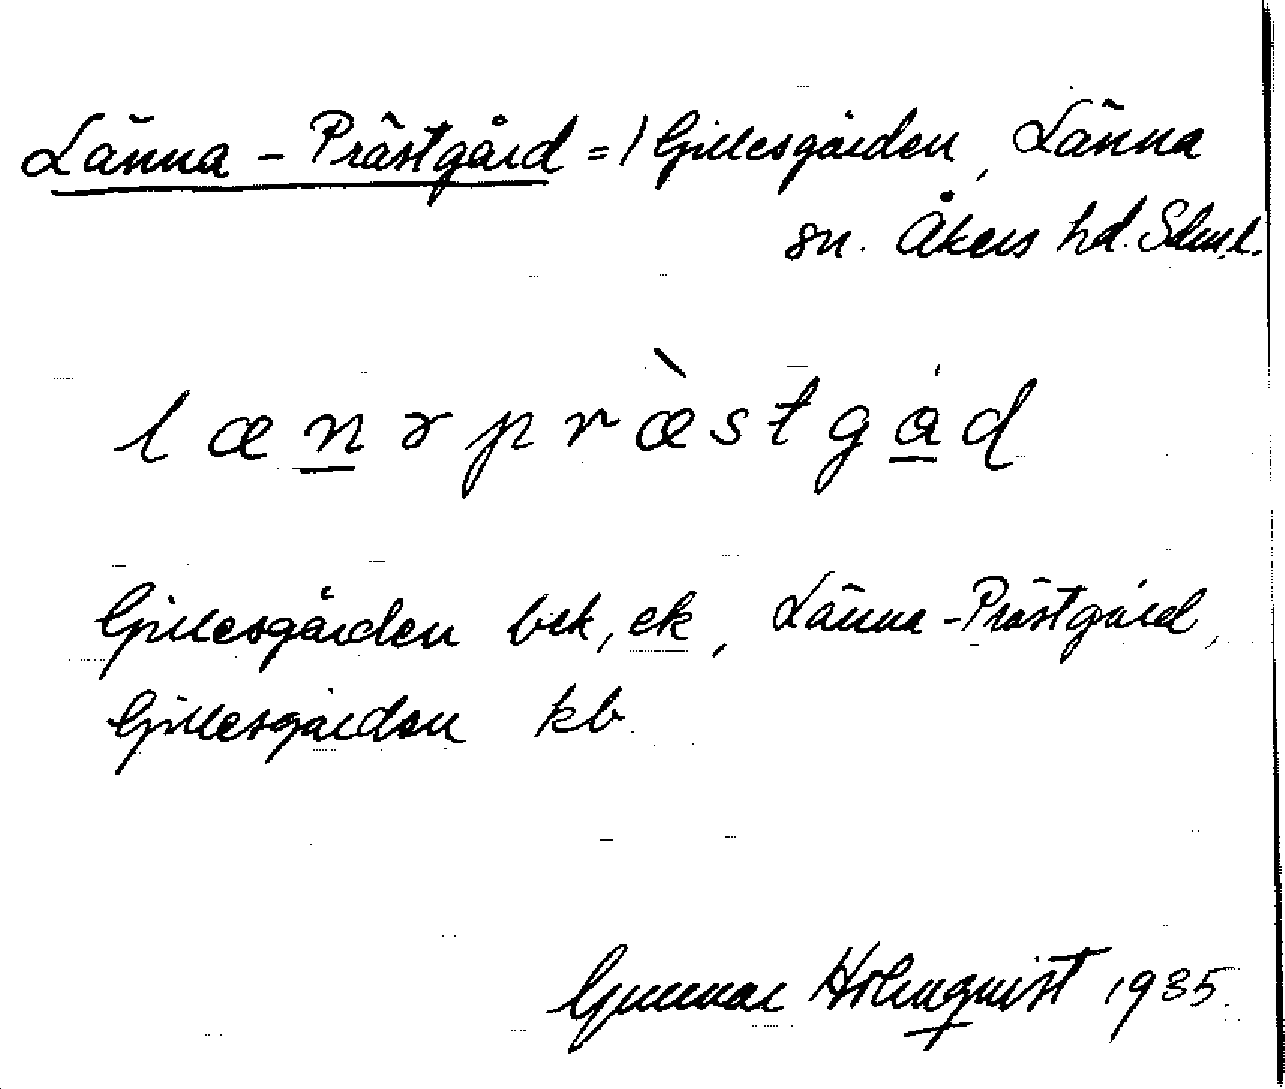 Länna-Prästgård =/ Gillesgården, Länna
sn. Åkers hd. Södml.
lænɤpræ̀stgåd
Gillesgården bek, ek, Länna-Prästgård,
Gillesgården kb.
Gunnar Holmquist 1935.